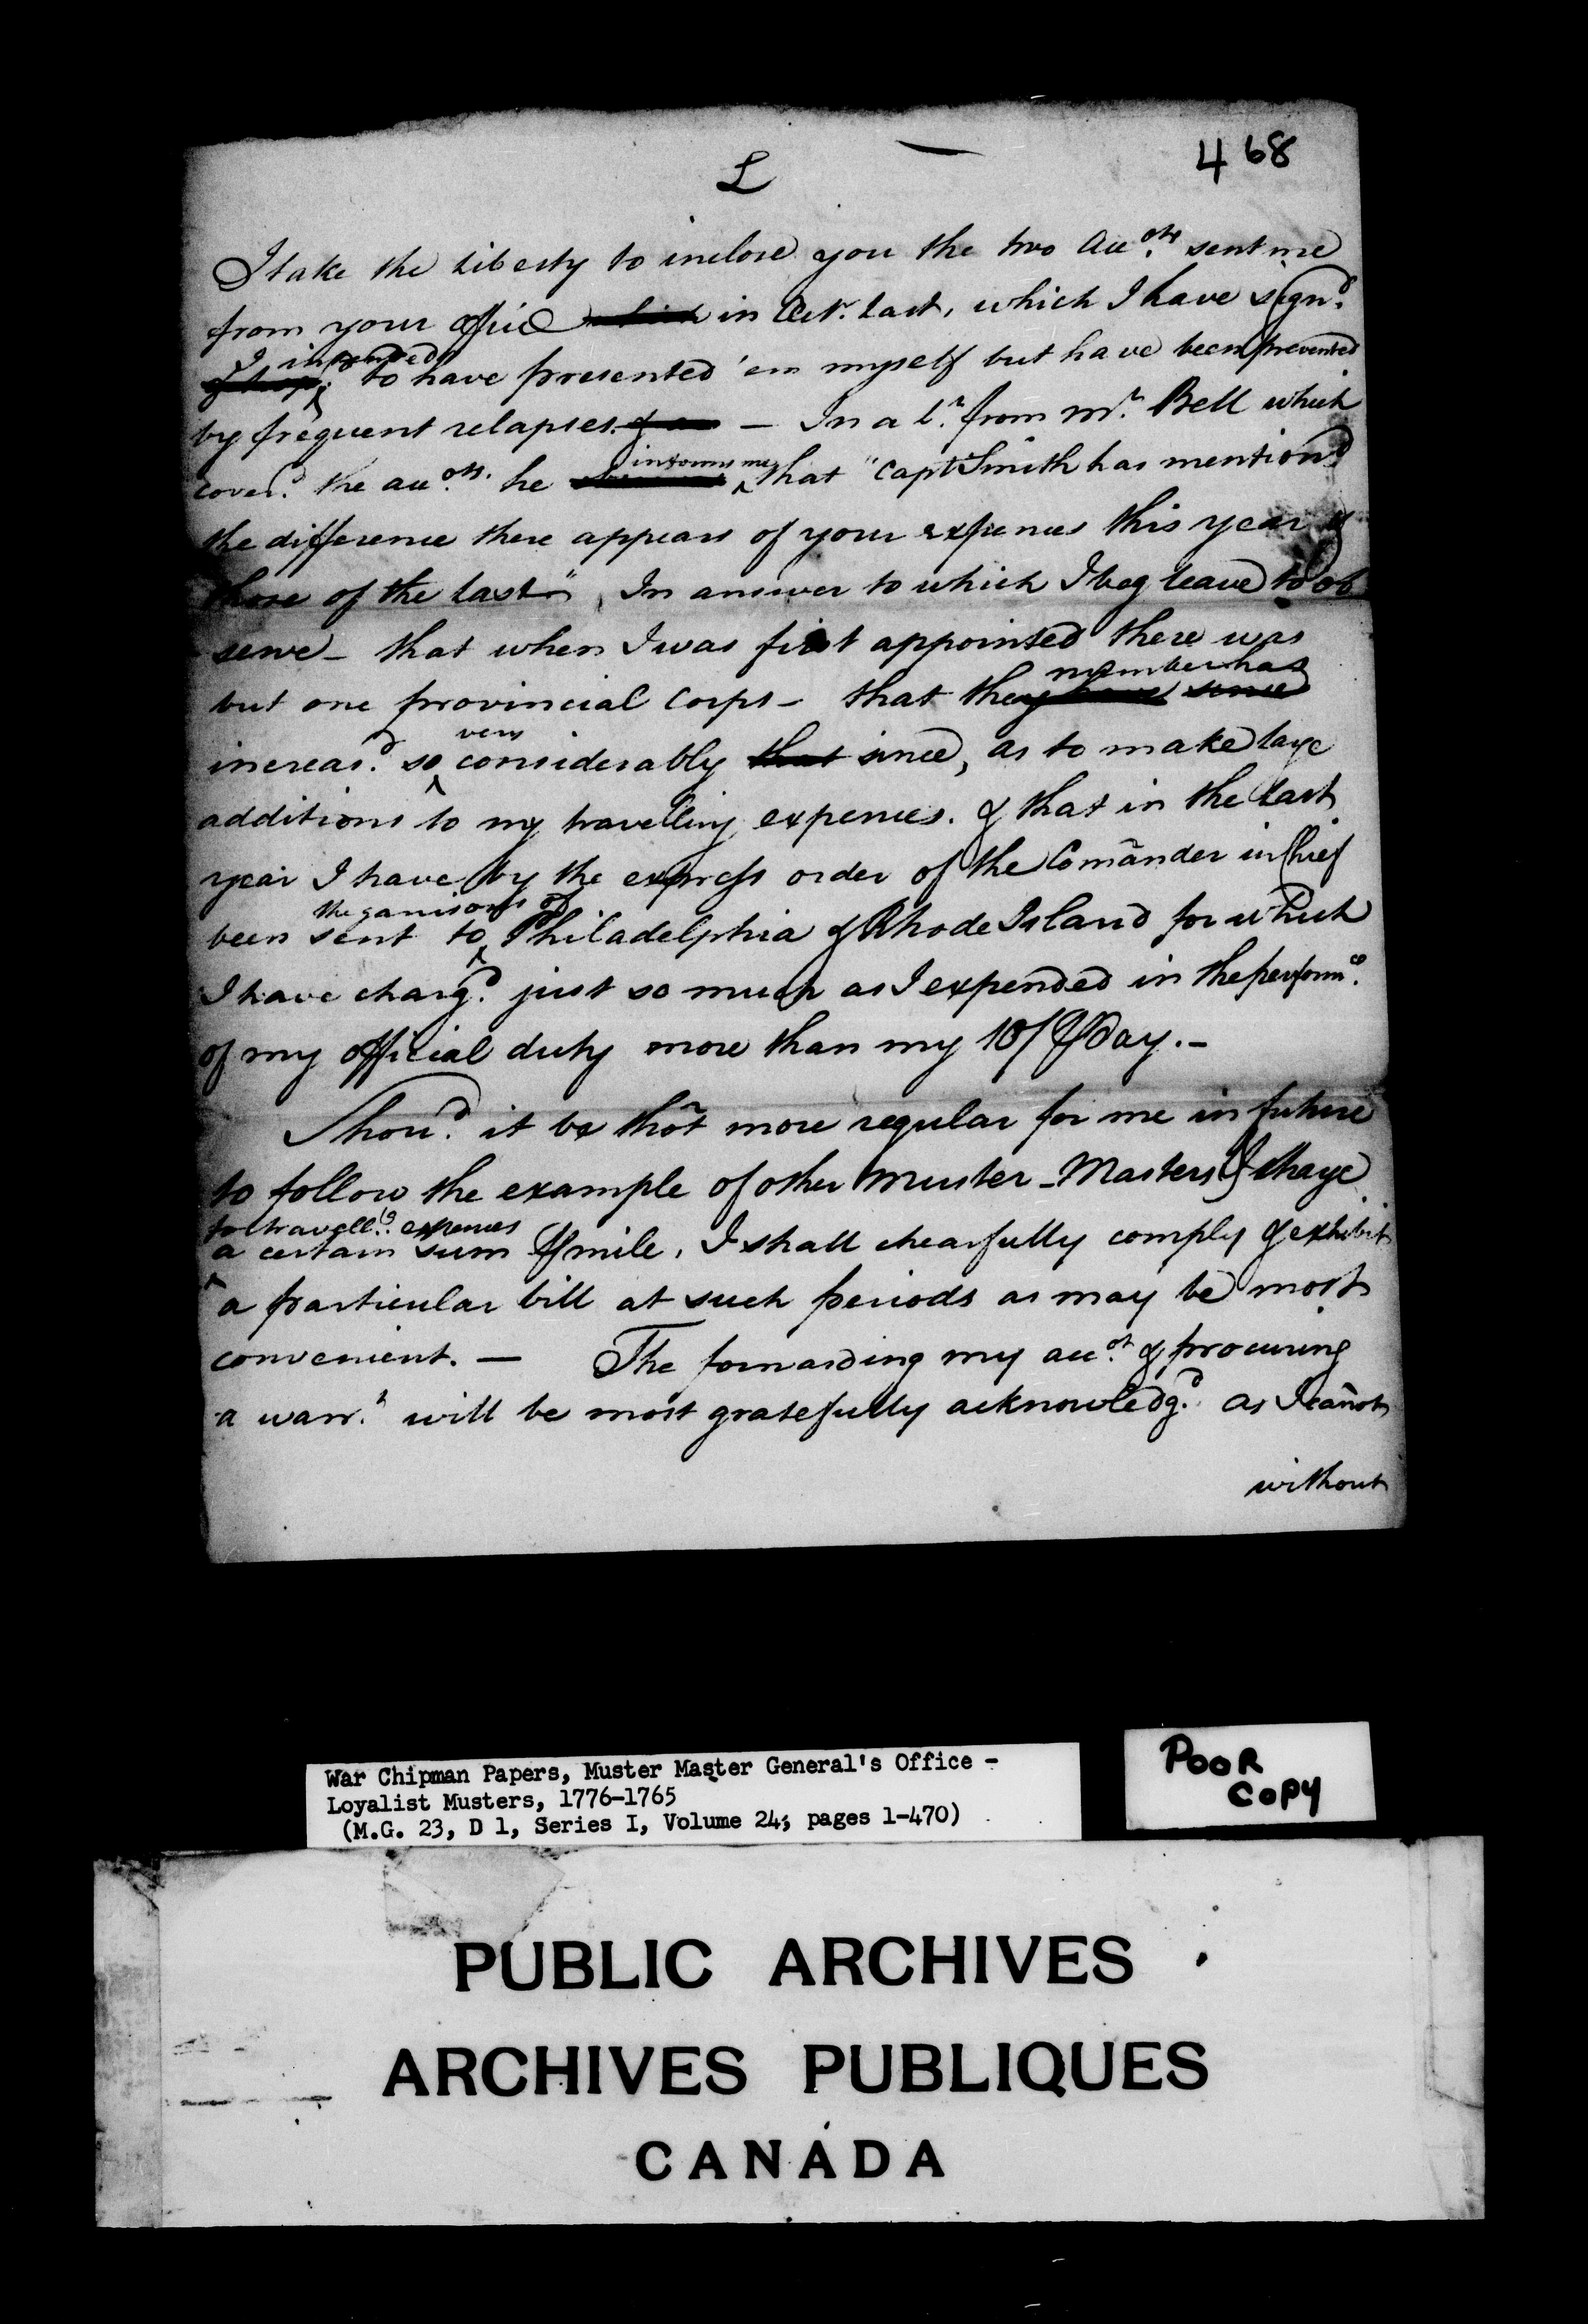 468
L
I take the Liberty to inclose you the two Accots. sent me
from your office which in Octr. last, which I have signd.
I intended to have presented 'em myself but have been prevented
by frequent relapses. — In a lr. from Mr. Bell which
coverd. the accots. he informs me that "Capt Smith has mentiond
the difference there appears of your expences this year &
those of the last" In answer to which I beg leave to ob
serve – that when I was first appointed there was
but one provincial Corps – that the number has
increasd. so very considerably that since, as to make large
additions to my travelling expences. & that in the last
year I have by the express order of the Comānder in Chief
been sent to the garrisons of Philadelphia & Rhode Island for which
I have chargd. just so much as I expended in the performce.
of my official duty more than my 10/ ⅌ day. –
Shoud. it be thōt more regular for me in future
to follow the example of other Muster-Masters & charge
for travellg. expences a certain sum ⅌ mile, I shall chearfully comply & exhibit
a particular bill at such periods as may be most
convenient. — The forwarding my accot. & procuring
a warrt. will be most gratefully acknowledgd. as I can̄ot
without
War Chipman Papers, Muster Master General's Office -
Loyalist Musters, 1776-1765
(M.G. 23, D 1, Series I, Volume 24; pages 1-470)
POOR
COPY
PUBLIC ARCHIVES
ARCHIVES PUBLIQUES
CANADA